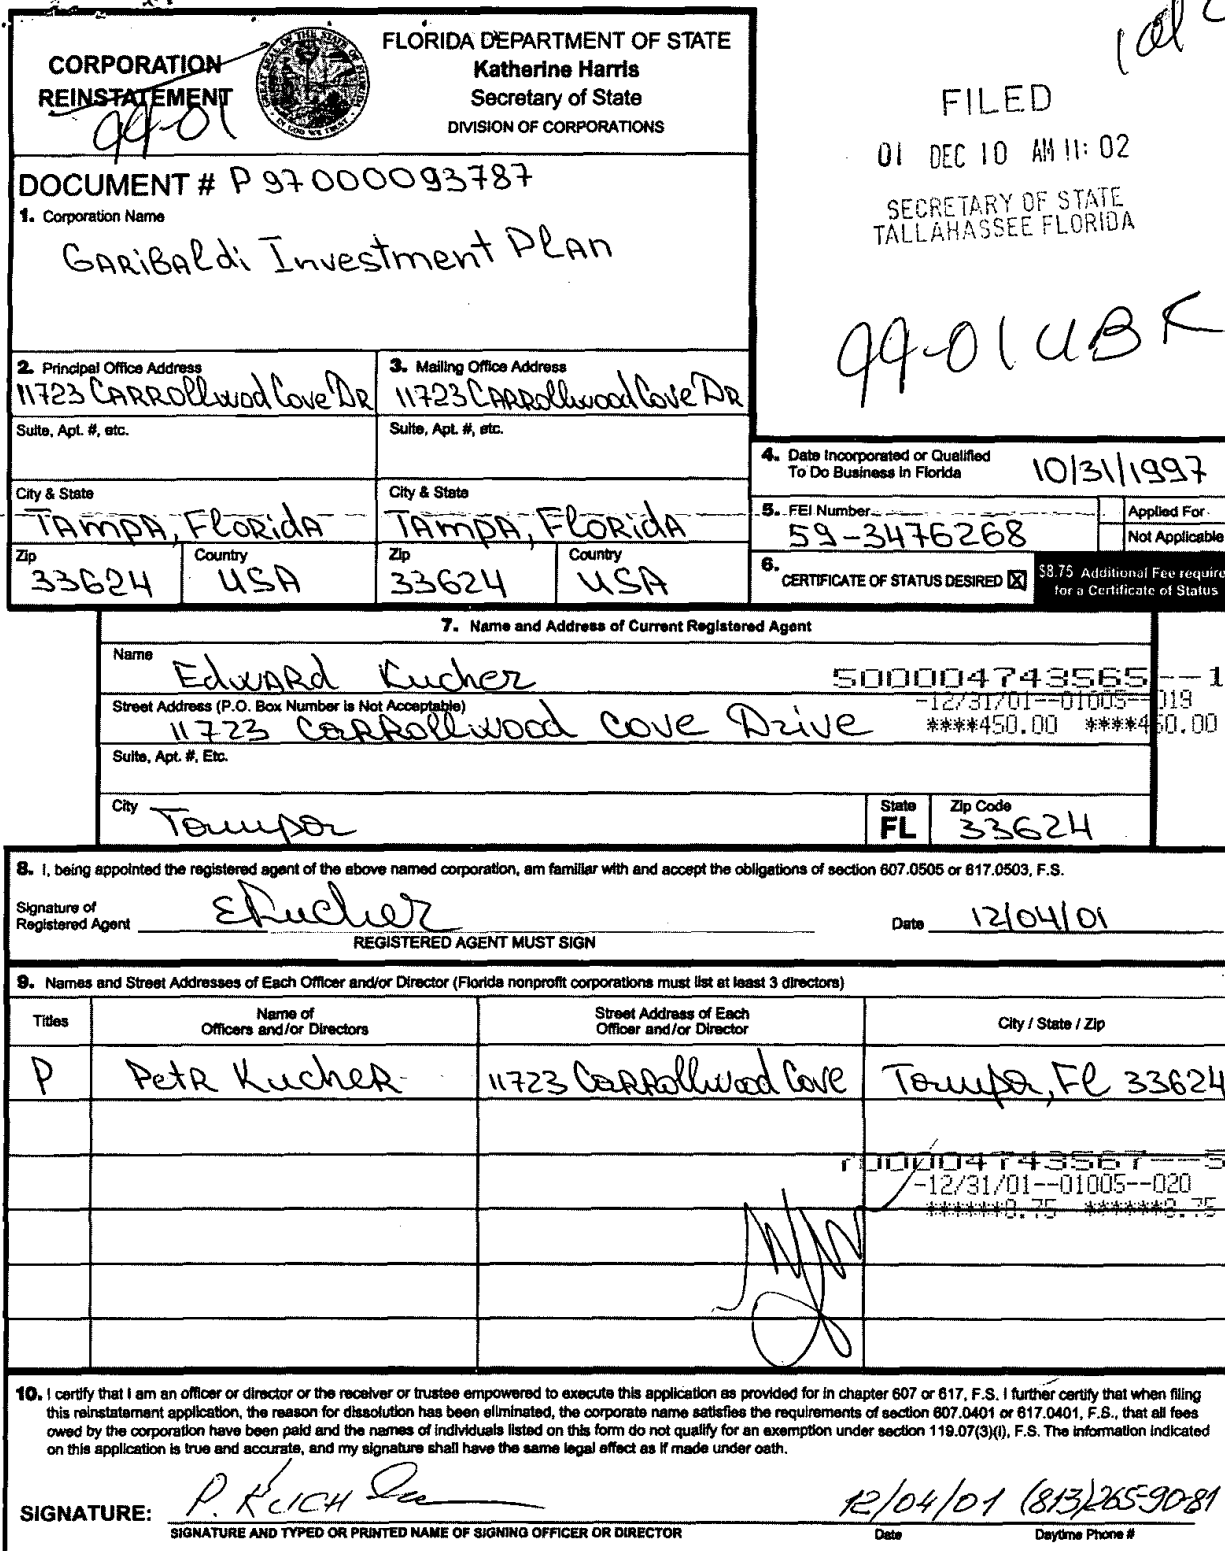 CORPORATION
REINSTATEMENT
99-01
FLORIDA DEPARTMENT OF STATE
Katherine Harris
Secretary of State
DIVISION OF CORPORATIONS
FILED
01 DEC 10 AM 11:02
SECRETARY OF STATE
TALLAHASSEE FLORIDA
DOCUMENT # P97000093787
1. Corporation Name
GARiBALdi Investment PLAn
99-01 UBR
2. Principal Office Address
11723 CARROllwood Cove DR
3. Mailing Office Address
11723 CARROllwood Cove DR
Suite, Apt. #, etc.
Suite, Apt. #, etc.
4. Date Incorporated or Qualified
To Do Business in Florida
10/31/1997
City & State
TAmpA, FloRidA
City & State
TAmpA, FloRidA
5. FEI Number
59-3476268
Applied For
Not Applicable
Zip
33624
Country
USA
Zip
33624
Country
USA
6. CERTIFICATE OF STATUS DESIRED X
$8.75 Additional Fee require
for a Certificate of Status
7. Name and Address of Current Registered Agent
Name
Edward Kucher
500004743565--1
-12/31/01--01005--019
****450.00 ****450.00
Street Address (P.O. Box Number is Not Acceptable)
11723 CARRollwood Cove Drive
Suite, Apt. #, Etc.
City
Tampa
State
FL
Zip Code
33624
8. I, being appointed the registered agent of the above named corporation, am familiar with and accept the obligations of section 607.0505 or 617.0503, F.S.
Signature of
Registered Agent
EKucher
Date 12/04/01
REGISTERED AGENT MUST SIGN
9. Names and Street Addresses of Each Officer and/or Director (Florida nonprofit corporations must list at least 3 directors)
Titles
Name of
Officers and/or Directors
Street Address of Each
Officer and/or Director
City / State / Zip
P
PetR KucheR
11723 CaRRollwood Cove
Tampa, Fl 33624
00004743567--5
-12/31/01--01005--020
******8.75 ******8.75
10. I certify that I am an officer or director or the receiver or trustee empowered to execute this application as provided for in chapter 607 or 617, F.S. I further certify that when filing
this reinstatement application, the reason for dissolution has been eliminated, the corporate name satisfies the requirements of section 607.0401 or 617.0401, F.S., that all fees
owed by the corporation have been paid and the names of individuals listed on this form do not qualify for an exemption under section 119.07(3)(i), F.S. The information indicated
on this application is true and accurate, and my signature shall have the same legal effect as if made under oath.
SIGNATURE: P. KUCH
12/04/01 (813)265-90-81
SIGNATURE AND TYPED OR PRINTED NAME OF SIGNING OFFICER OR DIRECTOR
Date
Daytime Phone #